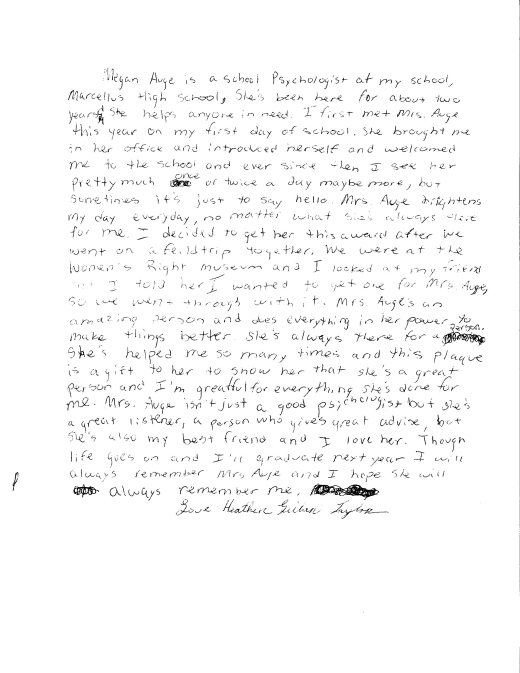 Megan Auge is a school Psychologist at my school,
Marcellus High School, She's been here for about two
years She helps anyone in need. I first met Mrs. Auge
this year on my first day of school. She brought me
in her office and introduced herself and welcomed
me to the school and ever since then I see her
pretty much once or twice a day maybe more, but
sometimes it's just to say hello. Mrs. Auge brightens
my day everyday, no matter what she's always there
for me. I decided to get her this award after we
went on a feildtrip together. We were at the
Women's Right museum and I looked at my friend
and I told her I wanted to get one for Mrs. Auge,
so we went through with it. Mrs. Auge's an
amazing person and does everything in her power to
make things better. She's always there for a person.
She's helped me so many times and this plaque
is a gift to her to show her that she's a great
person and I'm greatful for everything she's done for
me. Mrs. Auge isn't just a good psychologist but she's
a great listener, a person who gives great advise, but
she's also my best friend and I love her. Though
life goes on and I'll graduate next year I will
always remember Mrs Auge and I hope she will
always remember me.
Love Heather Taylor